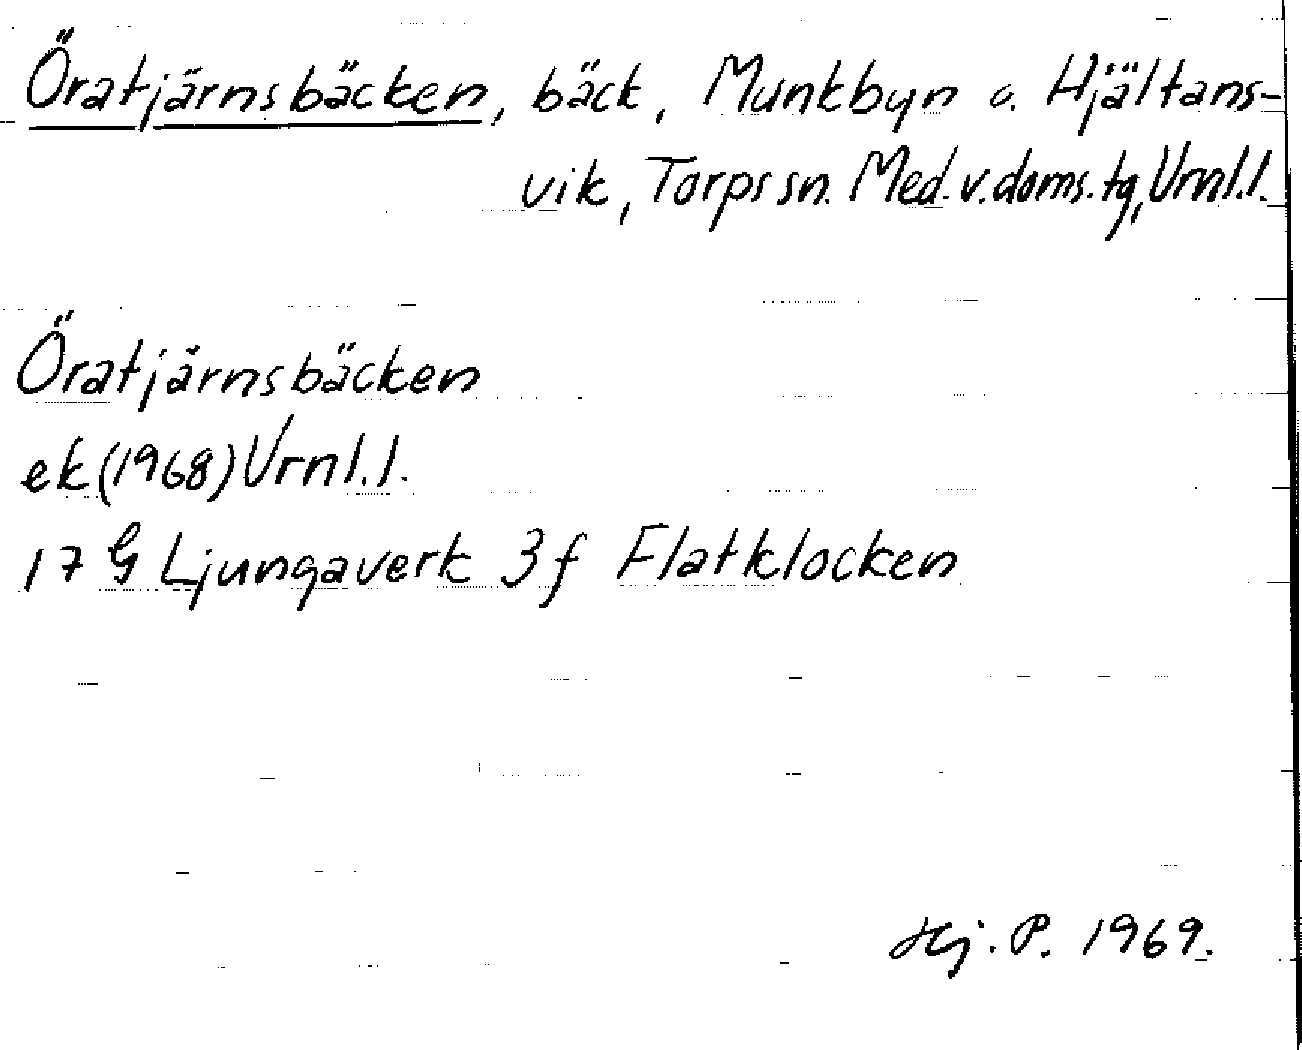 Öratjärnsbäcken, bäck, Munkbyn o. Hjältans-
vik, Torps sn. Med. v. doms. tg, Vrnl. l.
Öratjärnsbäcken
ek (1968) Vrnl. l.
17 G Ljungaverk 3 f Flatklocken
Hj. P. 1969.